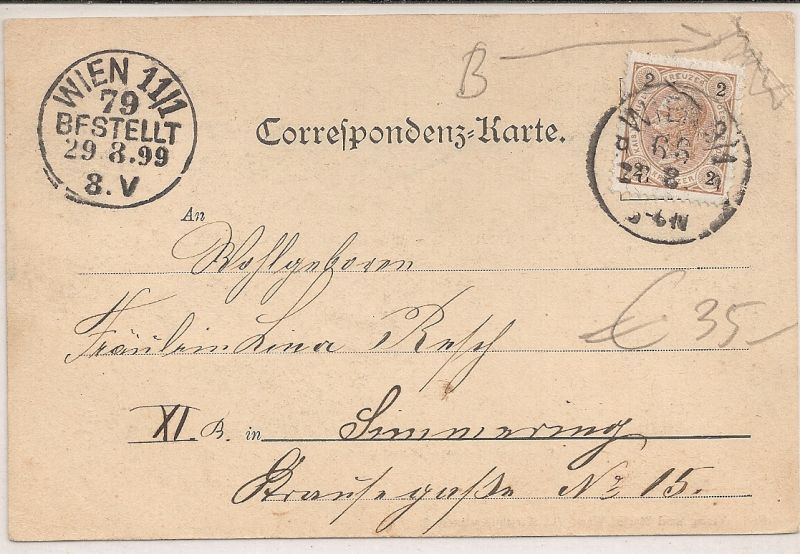 WIEN 11/1
79
BESTELLT
29.8.99
8.V
B
2 KREUZER 2
2 2
66
8
Correspondenz-Karte.
An
Wohlgeboren
Fräulein Lina Resch
€ 35
XI. B. in Simmering
Krausegaße No 15.